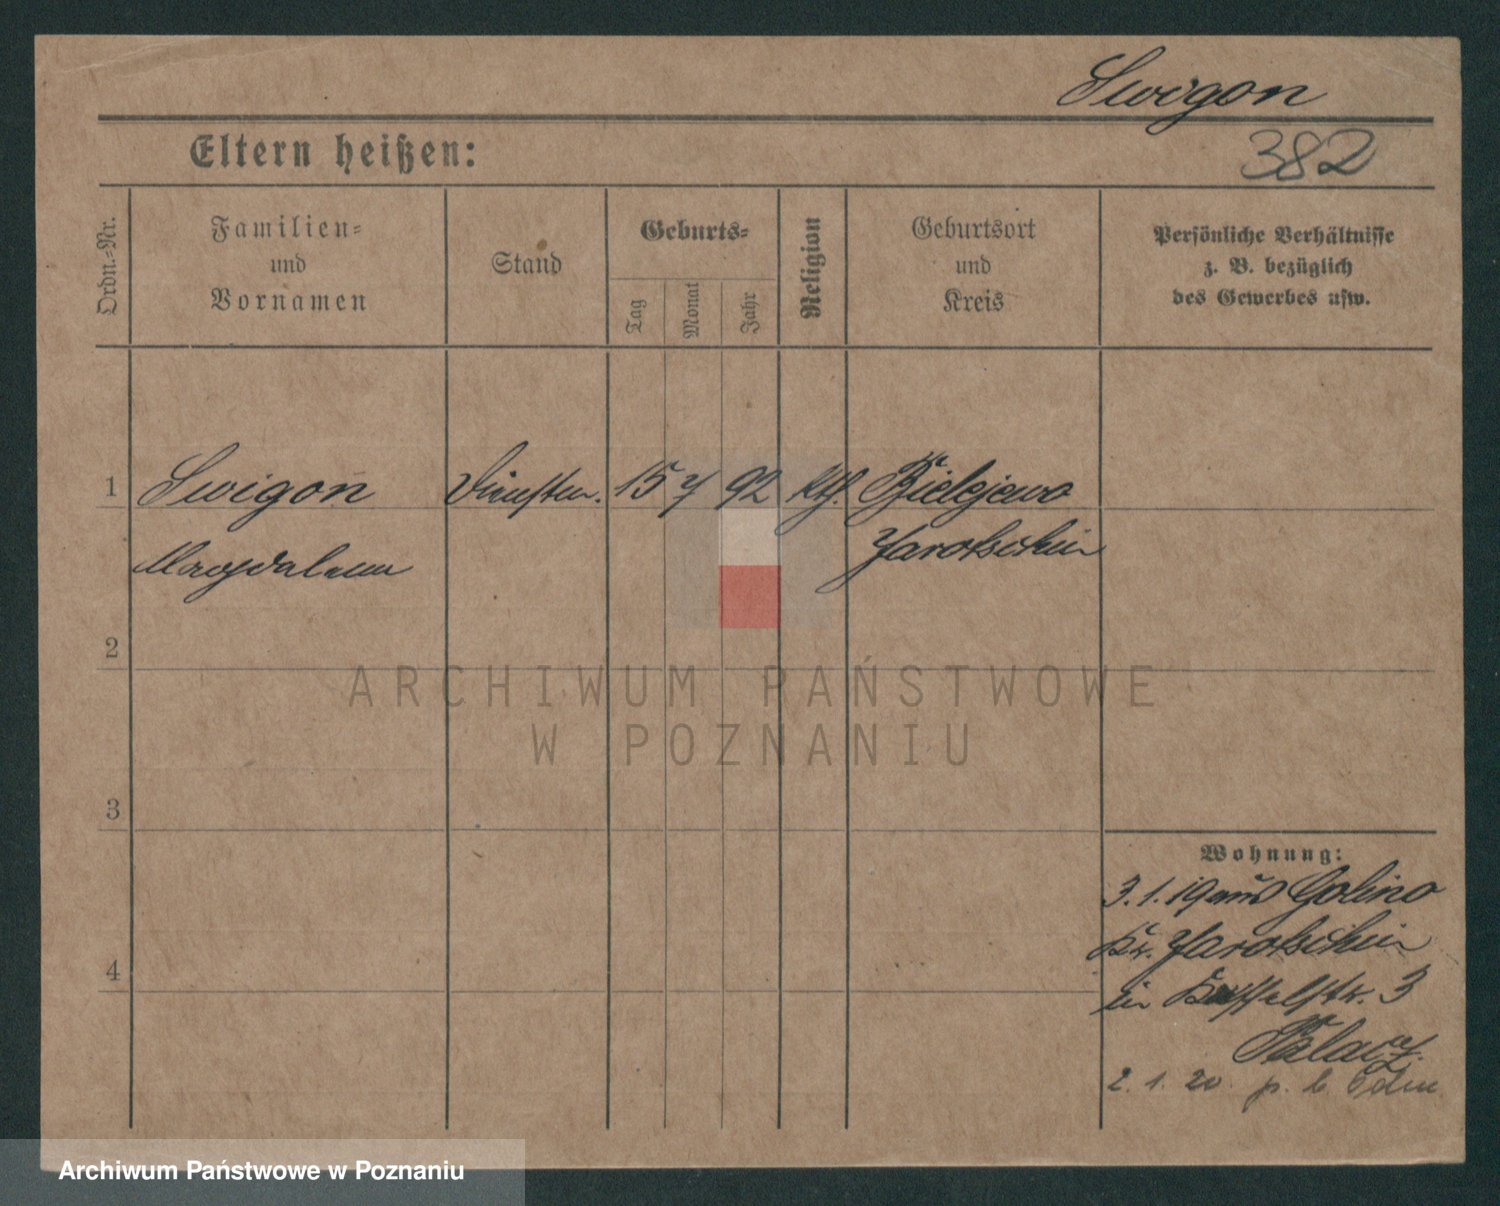 Swigon
382
Eltern heißen:
Ordn.-Nr.
Familien-
und
Vornamen
Stand
Geburts-
Tag
Monat
Jahr
Religion
Geburtsort
und
Kreis
Persönliche Verhältnisse
z. B. bezüglich
des Gewerbes usw.
1 Swigoń Dienstm. 15 7 92 kth. Bielejewo
Magdalena Jarotschin
2
ARCHIWUM PAŃSTWOWE
W POZNANIU
3
Wohnung:
3.1.19 aus Golina
Kr. Jarotschin
4
in 3
2.1.20 p.
Archiwum Państwowe w Poznaniu